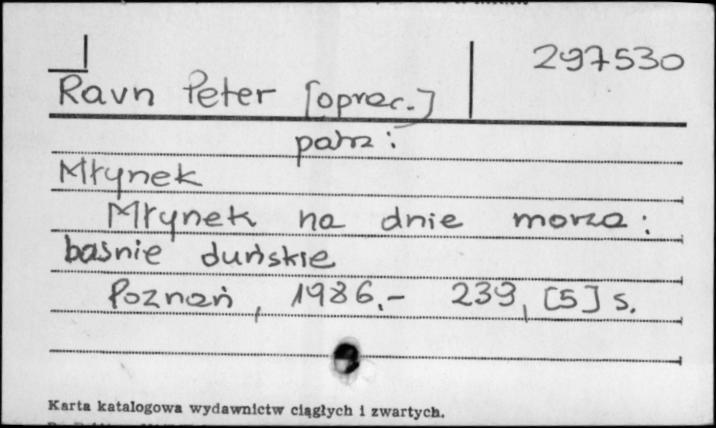 297530
Ravn Peter [oprac.]
patrz:
Młynek
Młynek na dnie morza:
baśnie duńskie
Poznań, 1986.- 239, [5] s.
Karta katalogowa wydawnictw ciągłych i zwartych.